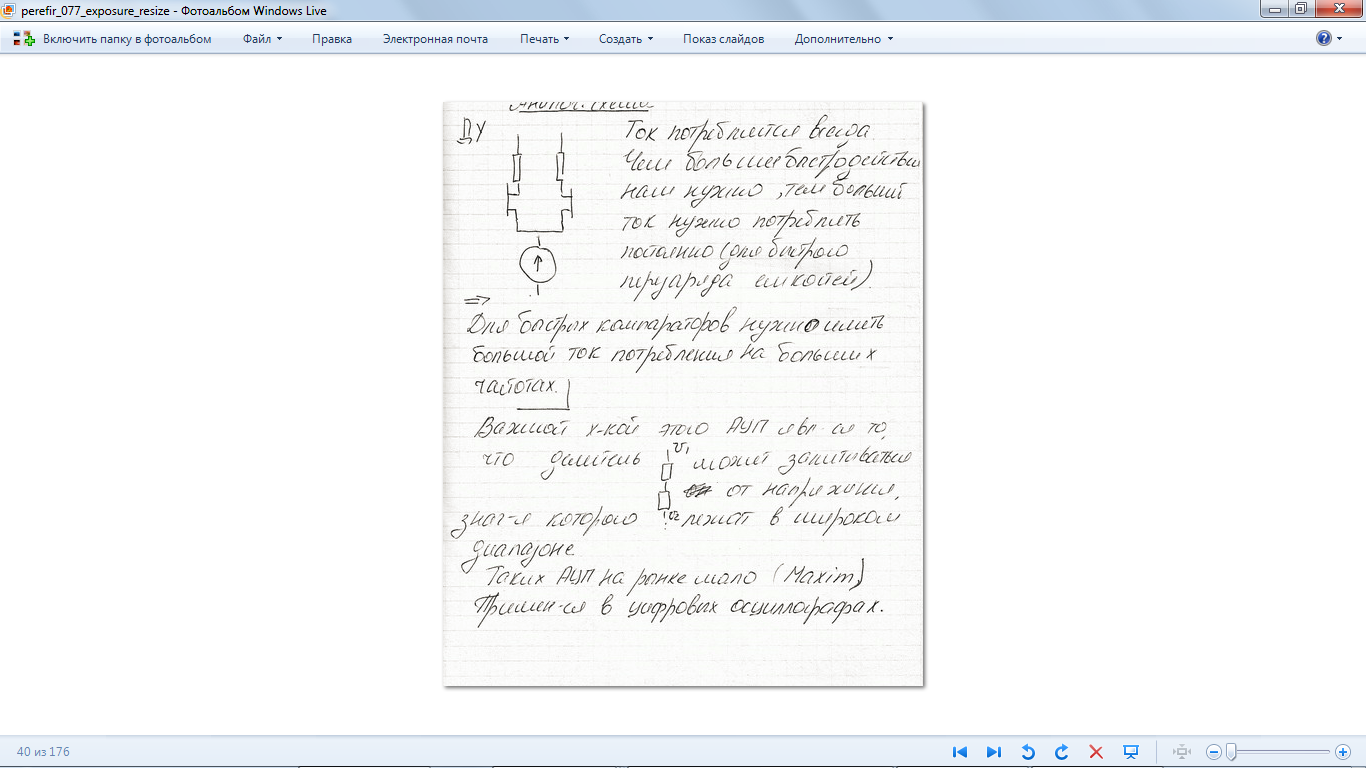 perefir_077_exposure_resize - Фотоальбом Windows Live
Включить папку в фотоальбом Файл Правка Электронная почта Печать Создать Показ слайдов Дополнительно
ДУ
Ток потребляется всегда.
Чем больше быстродействие
нам нужно, тем больший
ток нужно потреблять
постоянно (для быстрого
емкостей).
=>
Для быстрых компараторов нужно иметь
большой ток потребления на больших
частотах.
Важной х-кой этого АЦП явл-ся то,
что делитель может запитываться
U1
от напряжения,
U2
знач-я которого лежат в широком
диапазоне.
Таких АЦП на рынке мало (Maxim)
Примен-ся в цифровых осциллографах.
40 из 176